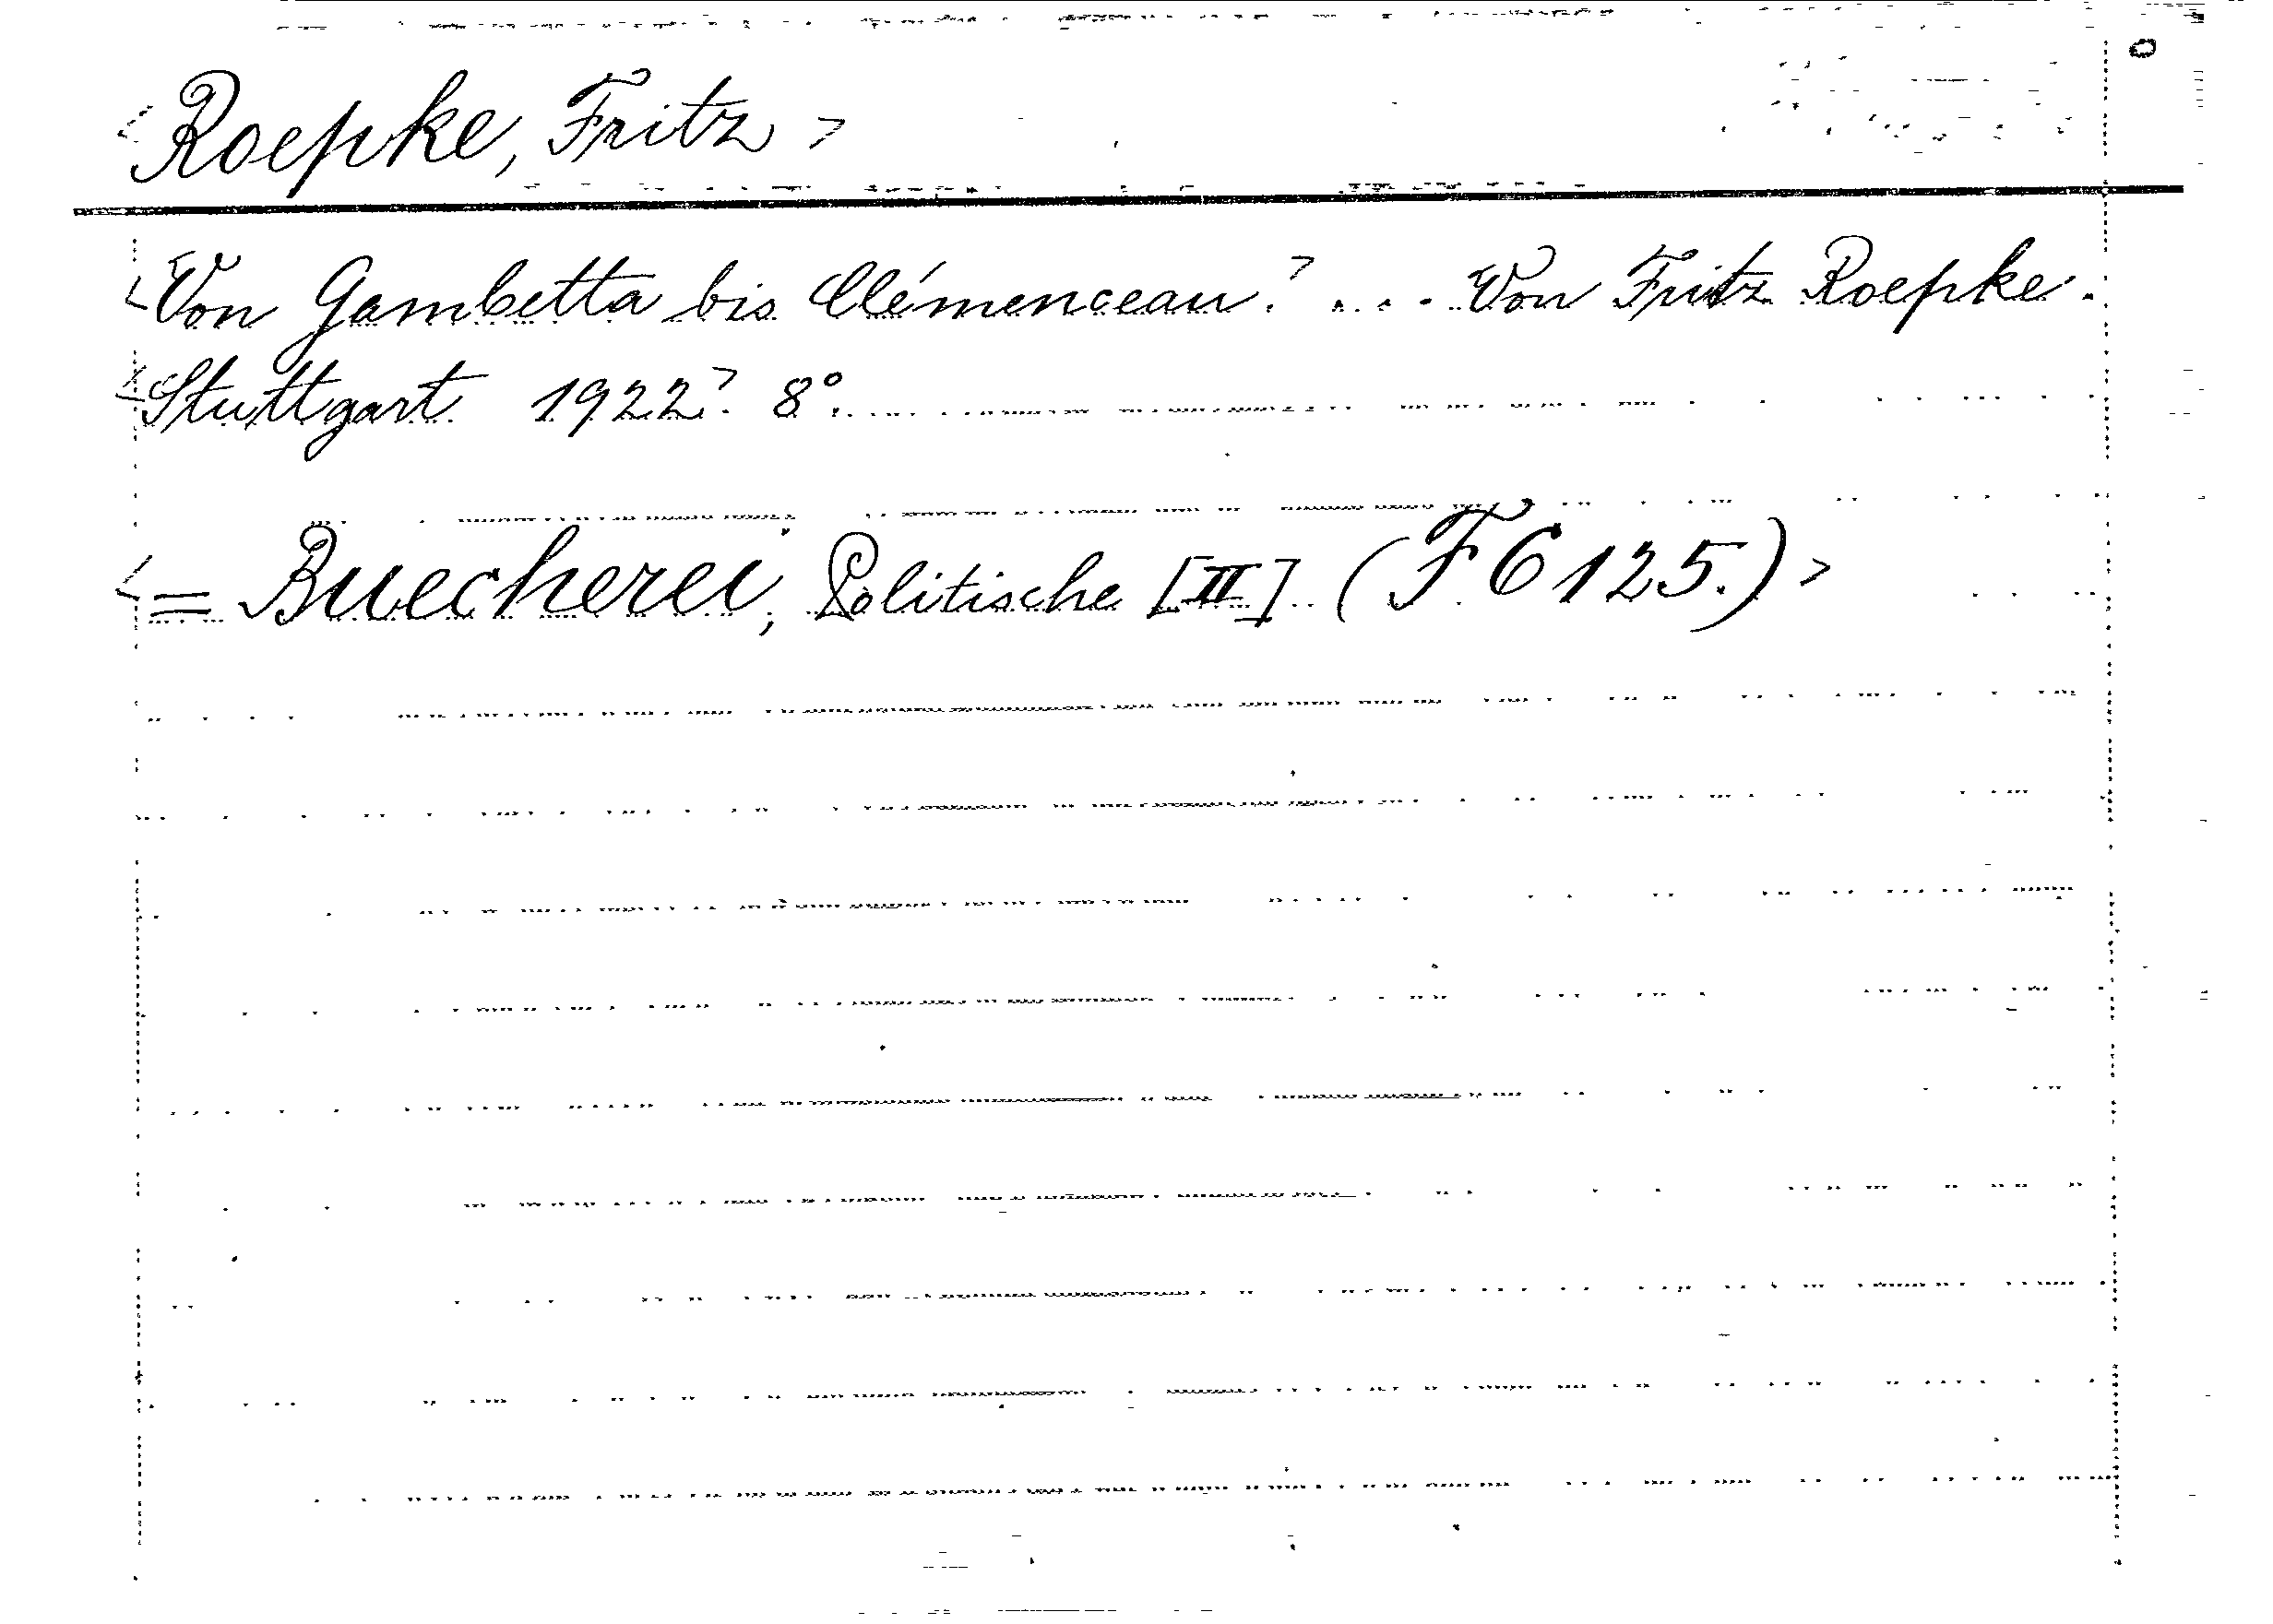 <Roepke, Fritz>
<Von Gambetta bis Clémenceau>. ... Von Fritz Roepke.
<Stuttgart 1922>. 8°.
<= Buecherei, Politische [II] (F 6125.)>